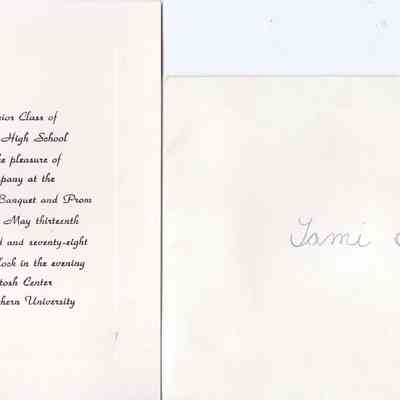 ior Class of
High School
e pleasure of
pany at the
Banquet and Prom
May thirteenth
d and seventy-eight
lock in the evening
tosh Center
hern University
Tami